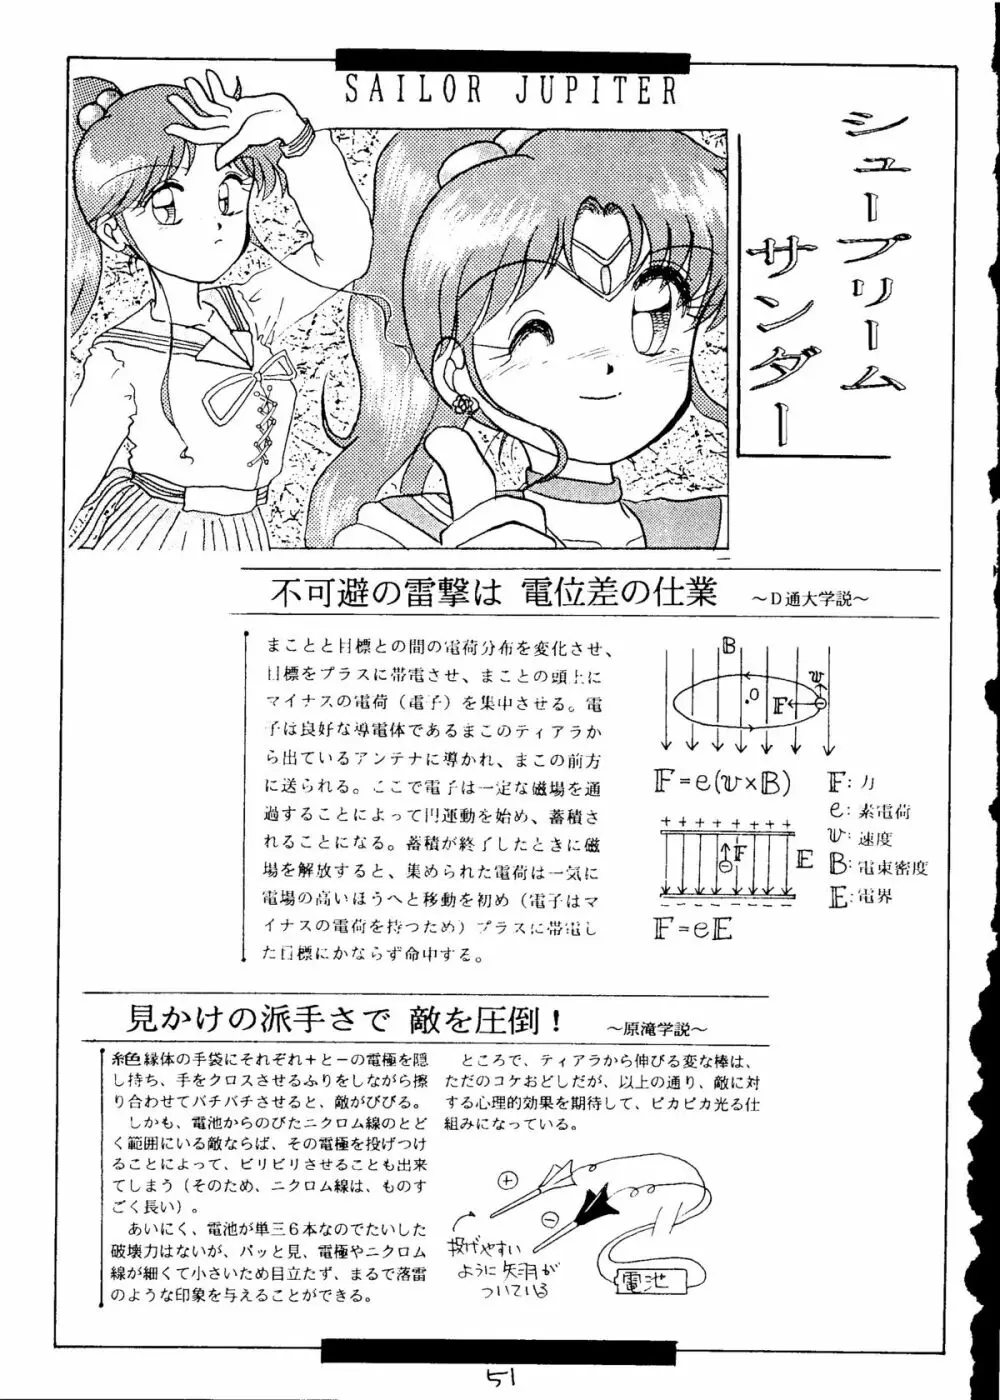 SAILOR JUPITER
シュープリーム
サンダー
不可避の雷撃は 電位差の仕業 ～D通大学説～
まことと目標との間の電荷分布を変化させ、
目標をプラスに帯電させ、まことの頭上に
マイナスの電荷（電子）を集中させる。電
子は良好な導電体であるまこのティアラか
ら出ているアンテナに導かれ、まこの前方
に送られる。ここで電子は一定な磁場を通
過することによって円運動を始め、蓄積さ
れることになる。蓄積が終了したときに磁
場を解放すると、集められた電荷は一気に
電場の高いほうへと移動を初め（電子はマ
イナスの電荷を持つため）プラスに帯電し
た目標にかならず命中する。
B
v
O
F
−
F=e(v×B)
F:力
e:素電荷
v:速度
B:電束密度
E:電界
+ + + + + + + +
F
−
E
− − − − − − − −
F=eE
見かけの派手さで 敵を圧倒！ ～原滝学説～
糸色縁体の手袋にそれぞれ＋と－の電極を隠
し持ち、手をクロスさせるふりをしながら擦
り合わせてバチバチさせると、敵がびびる。
しかも、電池からのびたニクロム線のとど
く範囲にいる敵ならば、その電極を投げつけ
ることによって、ビリビリさせることも出来
てしまう（そのため、ニクロム線は、ものす
ごく長い）。
あいにく、電池が単三６本なのでたいした
破壊力はないが、パッと見、電極やニクロム
線が細くて小さいため目立たず、まるで落雷
のような印象を与えることができる。
ところで、ティアラから伸びる変な棒は、
ただのコケおどしだが、以上の通り、敵に対
する心理的効果を期待して、ピカピカ光る仕
組みになっている。
+
−
投げやすい
ように矢羽が
ついている
電池
51